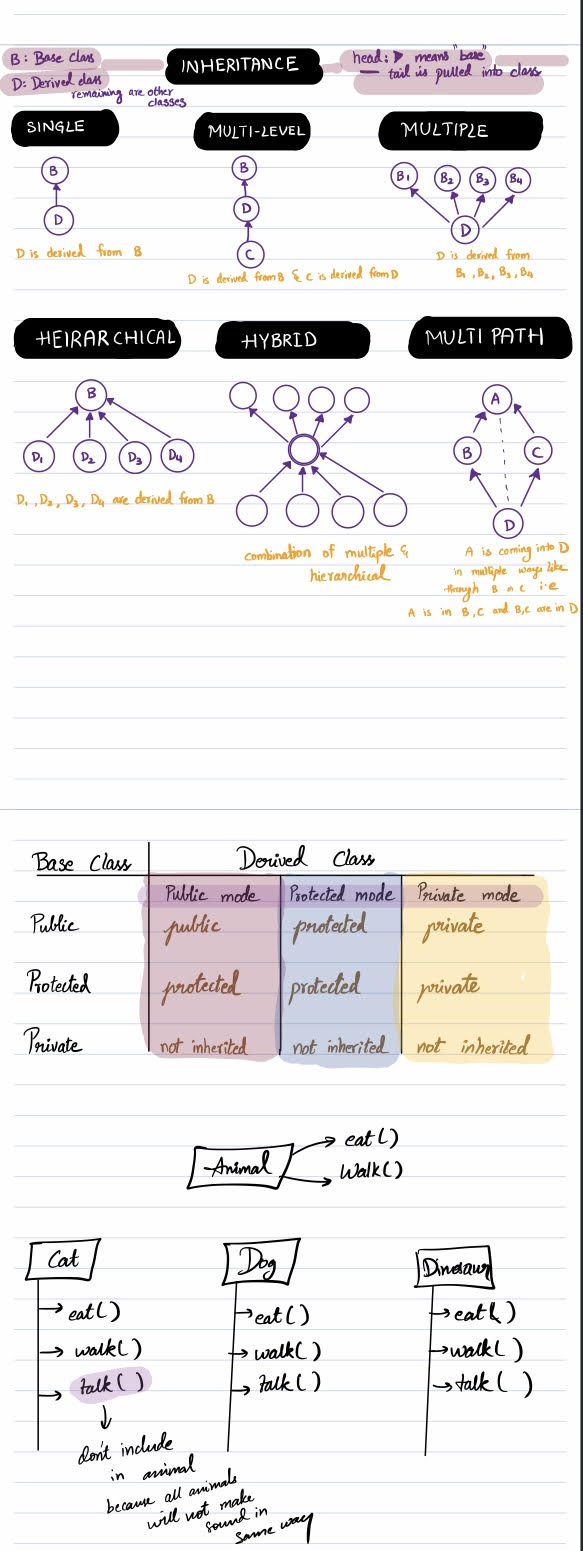 B: Base Class
D: Derived class
remaining are other
classes
INHERITANCE
head: ▶ means "base"
— tail is pulled into class
SINGLE
B
D
D is derived from B
MULTI-LEVEL
B
D
C
D is derived from B & C is derived from D
MULTIPLE
B1 B2 B3 B4
D
D is derived from
B1, B2, B3, B4
HEIRARCHICAL
B
D1 D2 D3 D4
D1, D2, D3, D4 are derived from B
HYBRID
combination of multiple &
hierarchical
MULTI PATH
A
B C
D
A is coming into D
in multiple ways like
through B n C i.e
A is in B,C and B,C are in D
Base Class Derived Class
Public mode Protected mode Private mode
Public public protected private
Protected protected protected private
Private not inherited not inherited not inherited
Animal
eat()
Walk()
Cat
eat()
walk()
talk()
don't include
in animal
because all animals
will not make
sound in
same way
Dog
eat()
walk()
talk()
Dinosaur
eat()
walk()
talk()